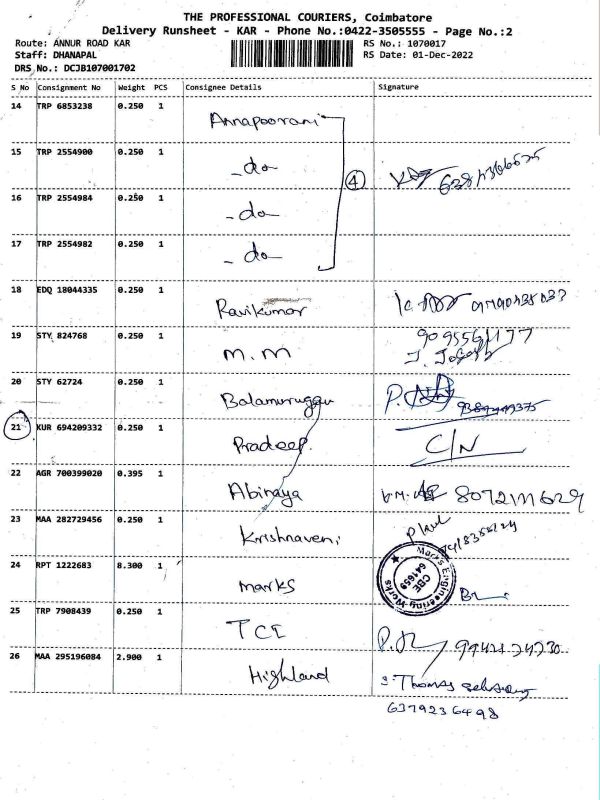 THE PROFESSIONAL COURIERS, Coimbatore
Delivery Runsheet - KAR - Phone No.:0422-3505555 - Page No.:2
Route: ANNUR ROAD KAR RS No.: 1070017
Staff: DHANAPAL RS Date: 01-Dec-2022
DRS No.: DCJB107001702
S No Consignment No Weight PCS Consignee Details Signature
14 TRP 6853238 0.250 1 Annapoorani
15 TRP 2554900 0.250 1 - do -
④
16 TRP 2554984 0.250 1 - do -
17 TRP 2554982 0.250 1 - do -
18 EDQ 18044335 0.250 1 Ravikumar
19 STY 824768 0.250 1 M.M
20 STY 62724 0.250 1 Balamurugan
21 KUR 694209332 0.250 1 Pradeep. C/N
22 AGR 700399020 0.395 1 Abinaya
23 MAA 282729456 0.250 1 Krishnaveni
24 RPT 1222683 8.300 1 Marks
Marks Engineering Works
CBE
641659
25 TRP 7908439 0.250 1 TCE
26 MAA 295196084 2.900 1 Highland S. Thomas
6379236498